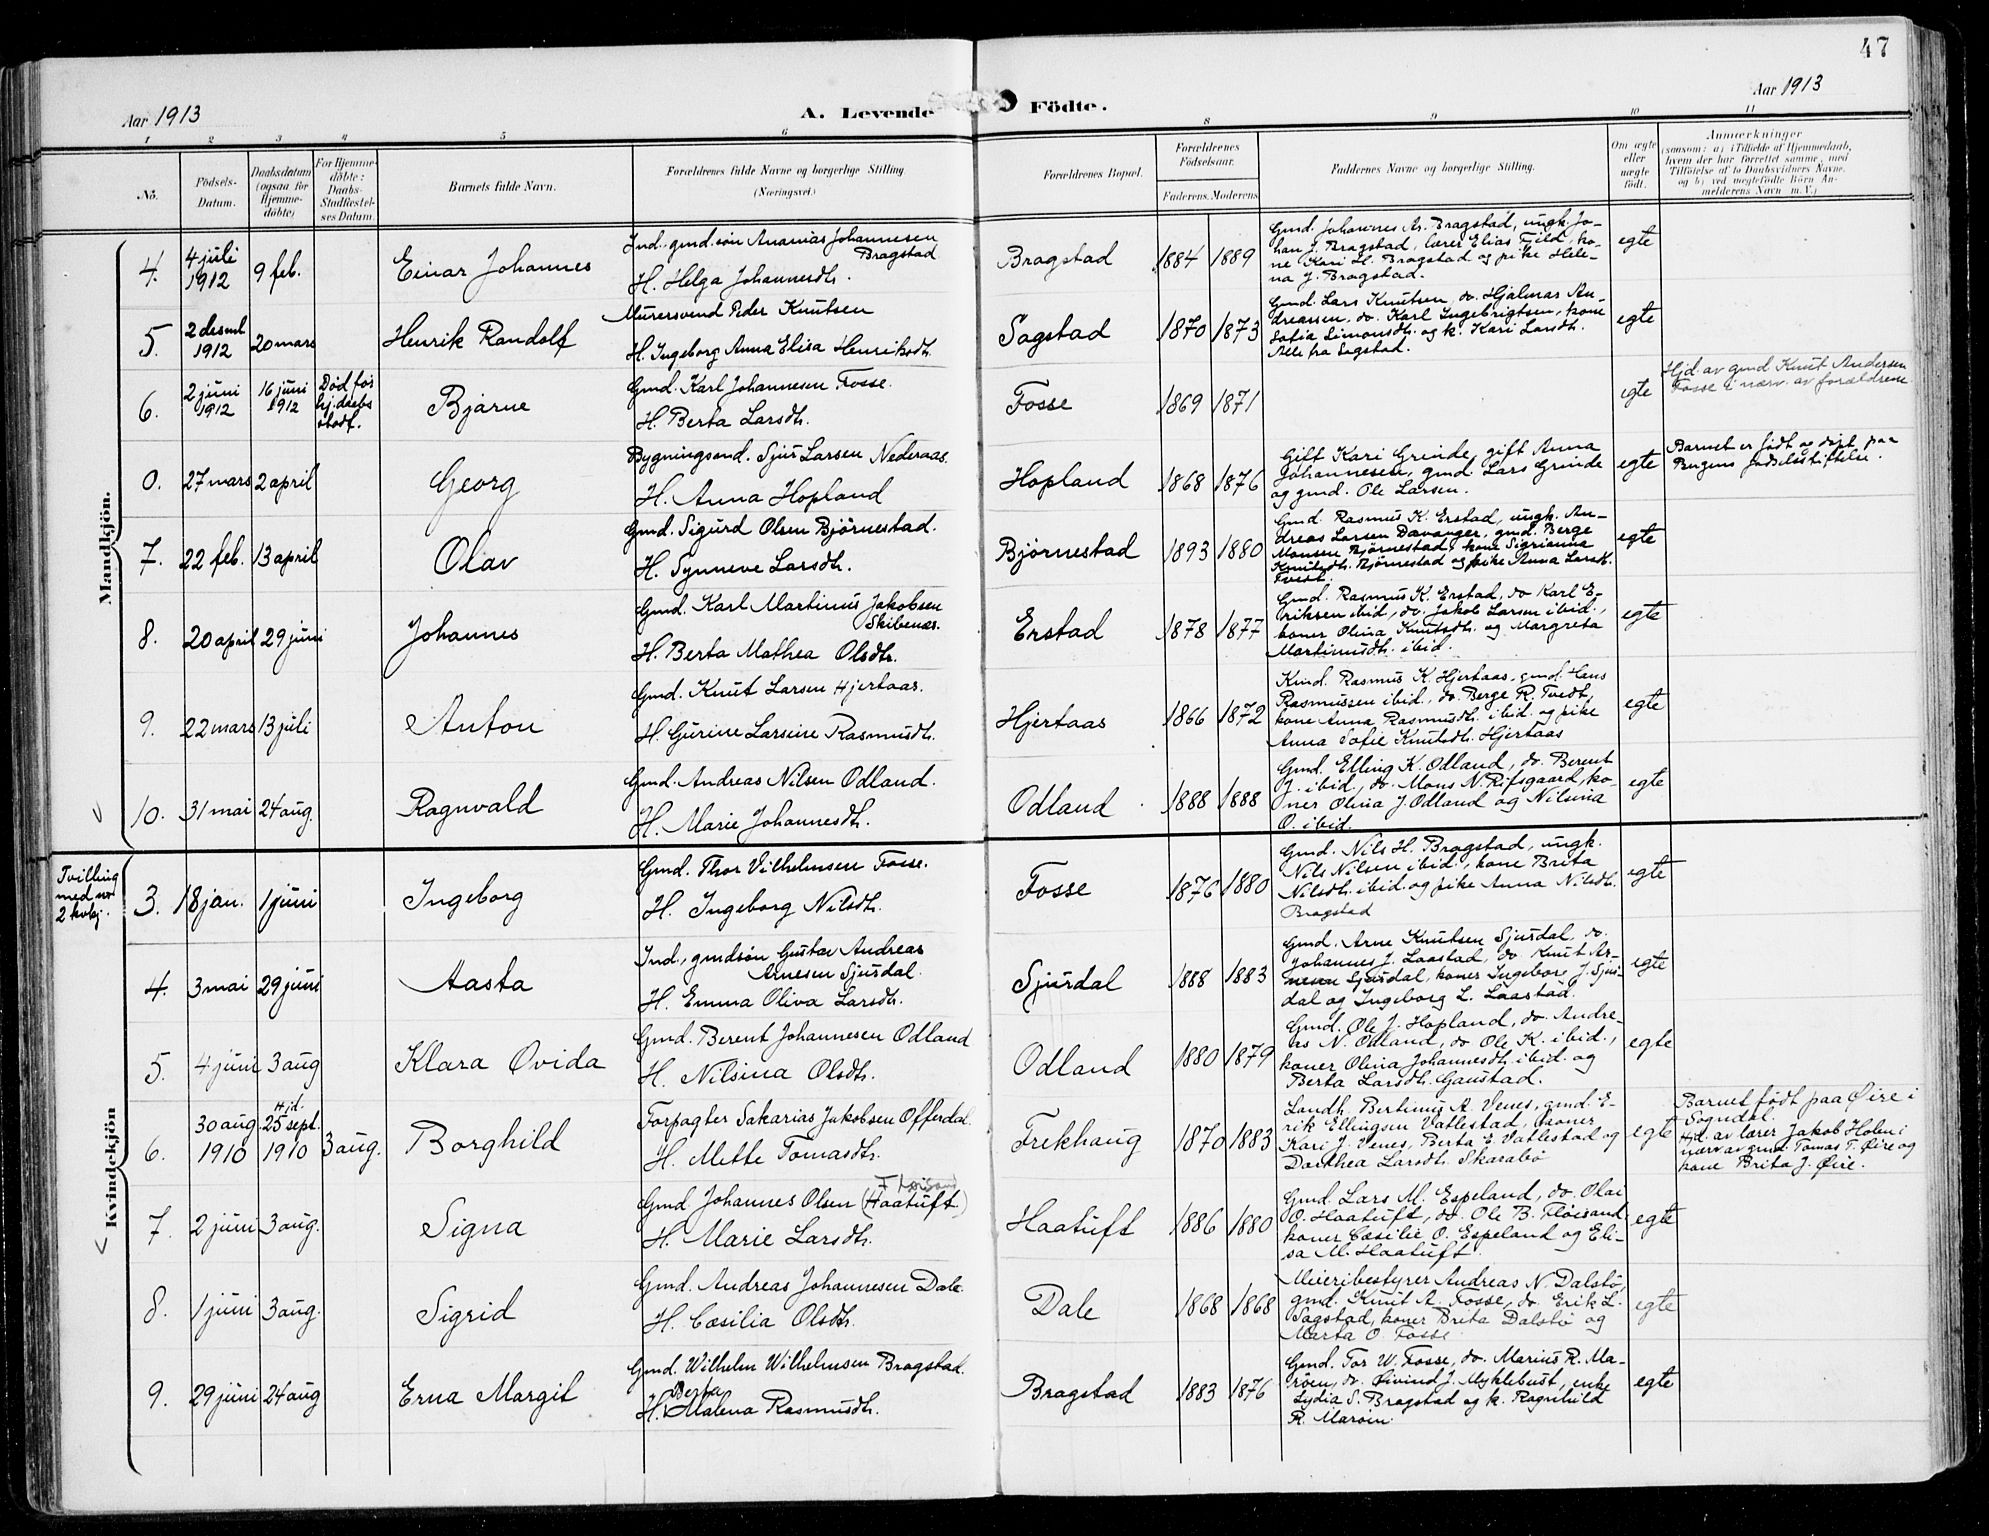 47
Aar 1913
A. Levende Födte.
Aar 1913
1 2 3 4 5 6 8 9 10 11
No.
Födsels-Datum.
Daabsdatum (ogsaa for Hjemme-döbte)
For Hjemme-döbte: Daabs-Stadfæstel-ses Datum.
Barnets fulde Navn.
Forældrenes fulde Navne og borgerlige Stilling
(Næringsvei.)
Forældrenes Bopæl.
Forældrenes Födselsaar.
Faderens. Moderens.
Faddernes Navne og borgerlige Stilling.
Om ægte eller uægte födt.
Anmærkninger
(saasom: a) i Tilfælde af Hjemmedaab,
hvem der har forrettet samme, med
Tilföielse af to Daabsvidners Navne,
og b) ved uægtefödte Börn An-
melderens Navn m. V.)
Mandkjön.
4. 4 juli 1912 9 feb. Einar Johannes
Ind., gmd.søn Ananias Johannesen Bragstad
H. Helga Johannesdtr.
Bragstad 1884 1889
Gmd. Johannes A. Bragstad, ungk. Jo-
han J. Bragstad, lærer Elias Fild, ko-
ne Kari H. Bragstad og pike Hele-
na J. Bragstad.
egte
5. 2 desmb. 1912 20 mars Henrik Randolf
Murersvend Peder Knutsen
H. Ingeborg Anna Elisa Henriksdtr.
Sagstad 1870 1873
Gmd. Lars Knutsen, do. Hjalmar An-
dreassen, do. Karl Ingebrigtsen, kone
Sofia Simonsdtr. og k. Kari Larsdtr.
Alle fra Sagstad.
egte
6. 2 juni 1912 16 juni 1912 Død før hj.daabs stadf. Bjarne
Gmd. Karl Johannesen Fosse.
H. Berta Larsdtr.
Fosse 1869 1871 egte
Hjd. av gmd Knut Andersen
Fosse i nærv. av forældrene
0. 27 mars 2 april Georg
Bygningssnd. Sjur Larsen Nederaas.
H. Anna Hopland
Hopland 1868 1876
Gift Kari Grinde, gift Anna
Johannesen, gmd. Lars Grinde
og gmd. Ole Larsen.
egte
Barnet er født og døpt paa
Bergens fødselsstiftelse.
7. 22 feb. 13 april Olav
Gmd. Sigurd Olsen Bjørnestad.
H. Synneve Larsdtr.
Bjørnestad 1893 1880
Gmd. Rasmus K. Erstad, ungk. An-
dreas Larsen Davanger, gmd. Berge
Monsen Bjørnestad, kone Sigrianna
Knutsdtr. Bjørnestad og pike Anna Larsdt.
Tvedt.
egte
8. 20 april 29 juni Johannes
Gmd. Karl Martinus Jakobsen Skibenes.
H. Berta Mathea Olsdtr.
Erstad 1878 1877
Gmd. Rasmus K. Erstad, do Karl E-
riksen ibid, do. Jakob Larsen ibid.,
koner Olina Knutsdtr. og Margreta
Martinusdtr. ibid.
egte
9. 22 mars 13 juli Anton
Gmd. Knut Larsen Hjertaas.
H. Gurine Larsine Rasmusdtr.
Hjertaas 1866 1872
Gmd. Rasmus K. Hjertaas, gmd. Hans
Rasmussen ibid., do. Berge R. Tvedt,
kone Anna Rasmusdtr. ibid. og pike
Anna Sofie Knutsdtr. Hjertaas
egte
10. 31 mai 24 aug. Ragnvald
Gmd. Andreas Nilsen Odland.
H. Marie Johannesdtr.
Odland 1888 1888
Gmd. Elling K. Odland, do. Berent
J. ibid., do. Mons N. Rifsgaard, ko-
ner Olina J. Odland og Nilsina
O. ibid.
egte
Kvindekjön
Tvilling
med no
2 kvkj.
3. 18 jan. 1 juni Ingeborg
Gmd. Thor Vilhelmsen Fosse.
H. Ingeborg Nilsdtr.
Fosse 1876 1880
Gmd. Nils H. Bragstad, ungk.
Nils Nilsen ibid., kone Brita
Nilsdtr. ibid. og pike Anna Nilsdtr.
Bragstad
egte
4. 3 mai 29 juni Aasta
Ind., gmdsøn Gustav Andreas
Arnesen Sjursdal.
H. Emma Oliva Larsdtr.
Sjursdal 1888 1883
Gmd. Arne Knutsen Sjursdal, do.
Johannes J. Laastad, do Knut Ar-
nesen Sjursdal, koner Ingeborg J. Sjurs-
dal og Ingeborg L. Laastad.
egte
5. 4 juni 3 aug Klara Ovida
Gmd. Berent Johannesen Odland
H. Nilsina Olsdtr.
Odland 1880 1879
Gmd. Ole J. Hopland, do. Andre-
as N. Odland, do Ole K. ibid.,
koner Olina Johannesdtr. ibid. og
Berta Larsdtr. Gaustad.
egte
6. 30 aug. 1910 Hjd. 25 sept. 1910 3 aug. Borghild
Forpagter Sakarias Jakobsen Offerdal.
H. Mette Tomasdtr.
Frekhaug 1870 1883
Landh. Bertinus A. Venes, gmd. E-
rik Ellingsen Vatlestad, koner
Kari J. Venes, Berta E. Vatlestad og
Dorthea Larsdtr. Skarabø
egte
Barnet født paa Øire i
Sogndal.
Hjd. av lærer Jakob Holen i
nærv av gmd. Tomas T. Øire og
kone Brita J. Øire.
7. 2 juni 3 aug. Signa
Fløisand
Gmd Johannes Olsen (Haatuft.)
H. Marie Larsdtr.
Haatuft 1886 1880
Gmd. Lars M. Espeland, do. Olai
O. Haatuft, do. Ole B. Fløisand
koner Cæsilie O. Espeland og Eli-
sa M. Haatuft.
egte
8. 1 juni 3 aug. Sigrid
Gmd. Andreas Johannesen Dale
H. Cæsilia Olsdtr.
Dale 1868 1868
Meieribestyrer Andreas N. Dalstø,
gmd. Knut A. Fosse, do. Erik L.
Sagstad, koner Brita Dalstø og
Marta O. Fosse
egte
9. 29 juni 24 aug Erna Margit
Gmd. Wilhelm Wilhelmsen Bragstad.
Berta
H. Malena Rasmusdtr.
Bragstad 1883 1876
Gmd. Tor W. Fosse, do. Marius R. Ma-
røen, do. Øivind J. Myklebust, enke
Lydia S. Bragstad og k. Ragnhild
R. Marøen.
egte